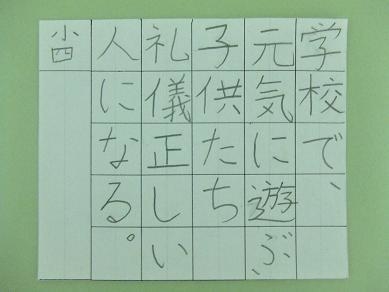 学校で、
元気に遊ぶ
子供たち
礼儀正しい
人になる。
小四